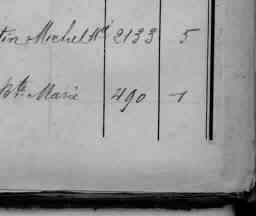 tin Michel Md 2133 5
Bte Marie 490 1